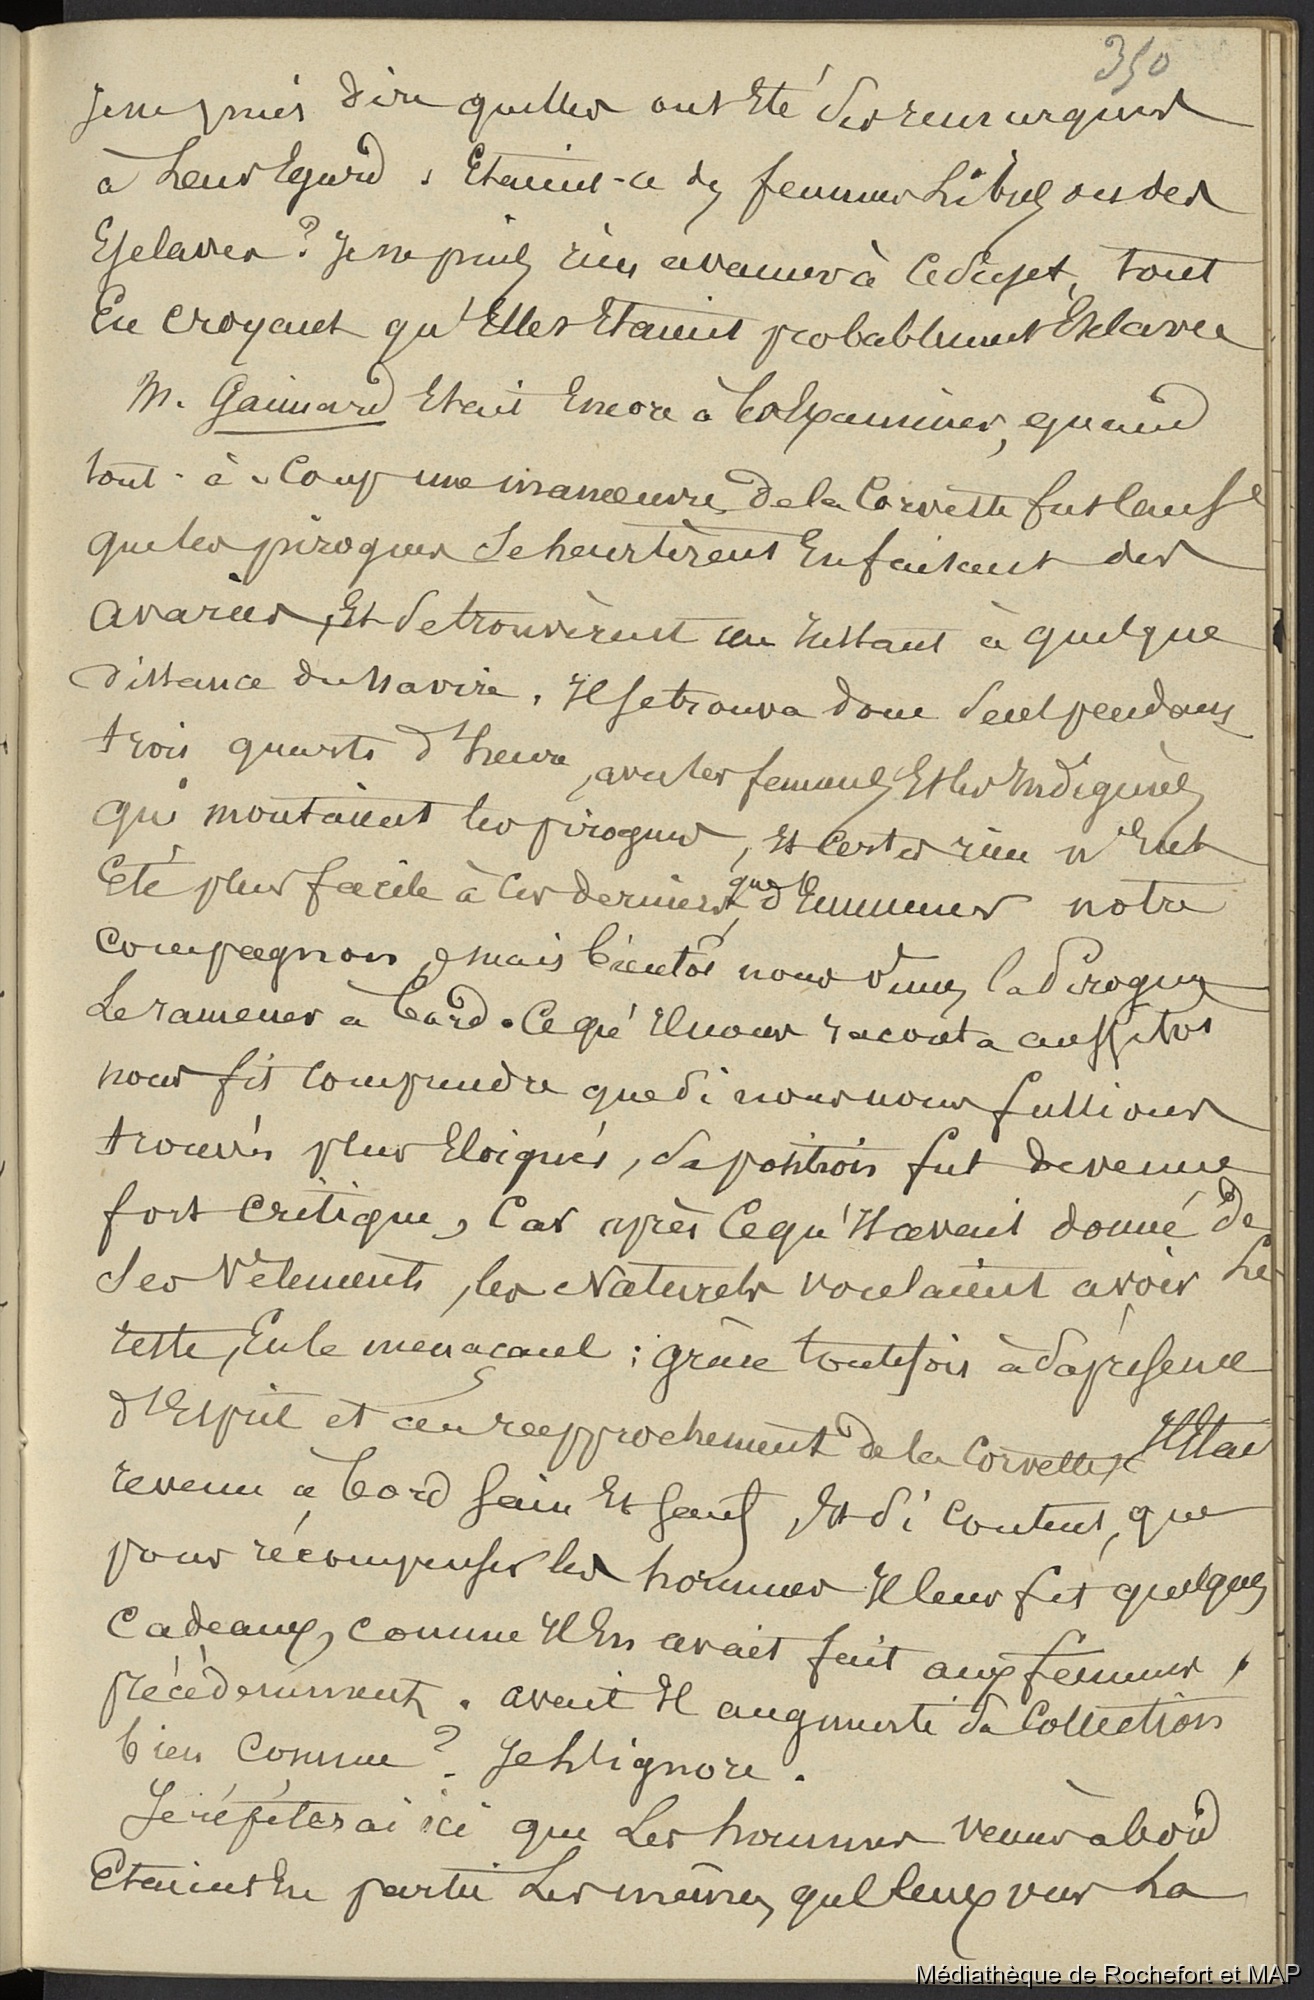 350
Je ne puis dire quelles ont été des remarques
à leur Egard. Etaient-ce des femmes libres ou des
Esclaves ? Je ne puis rien avancer à ce sujet, tout
En croyant qu'Elles Etaient probablement Esclaves
M. Gaimard Etait Encore à les Examiner, quand
tout-à-coup une manœuvre de la Corvette fut cause
que les pirogues se heurtèrent En faisant des
avaries, Et se trouvèrent un Instant à quelque
distance du navire. Il se trouva donc seul pendant
trois quarts d'heure, avec les femmes Et les Indigènes
qui montaient les pirogues, Et Certes rien n'Eut
Eté plus facile à ces derniers que d'Emmener notre
compagnon, mais bientôt nous vîmes la Pirogue
Le ramener à bord. Ce qu'Il nous raconta aussitôt
nous fit comprendre que si nous nous fussions
trouvés plus Eloignés, sa position fut devenue
fort critique, Car après ce qu'Il avait donné de
ses Vêtements, les Naturels voulaient avoir Le
reste, En le menaçant ; grâce toutefois à sa présence
d'Esprit et au rapprochement de la Corvette, Il Etait
revenu à bord sain Et sauf, Et si content, que
pour récompenser les hommes Il leur fit quelques
cadeaux, comme Il En avait fait aux femmes,
précédemment. avait Il augmenté sa Collection
bien connue ? Je L'ignore.
Je répéterai ici que Les hommes venus à bord
Etaient En partie Les mêmes que l'on a vus La
Médiathèque de Rochefort et MAP